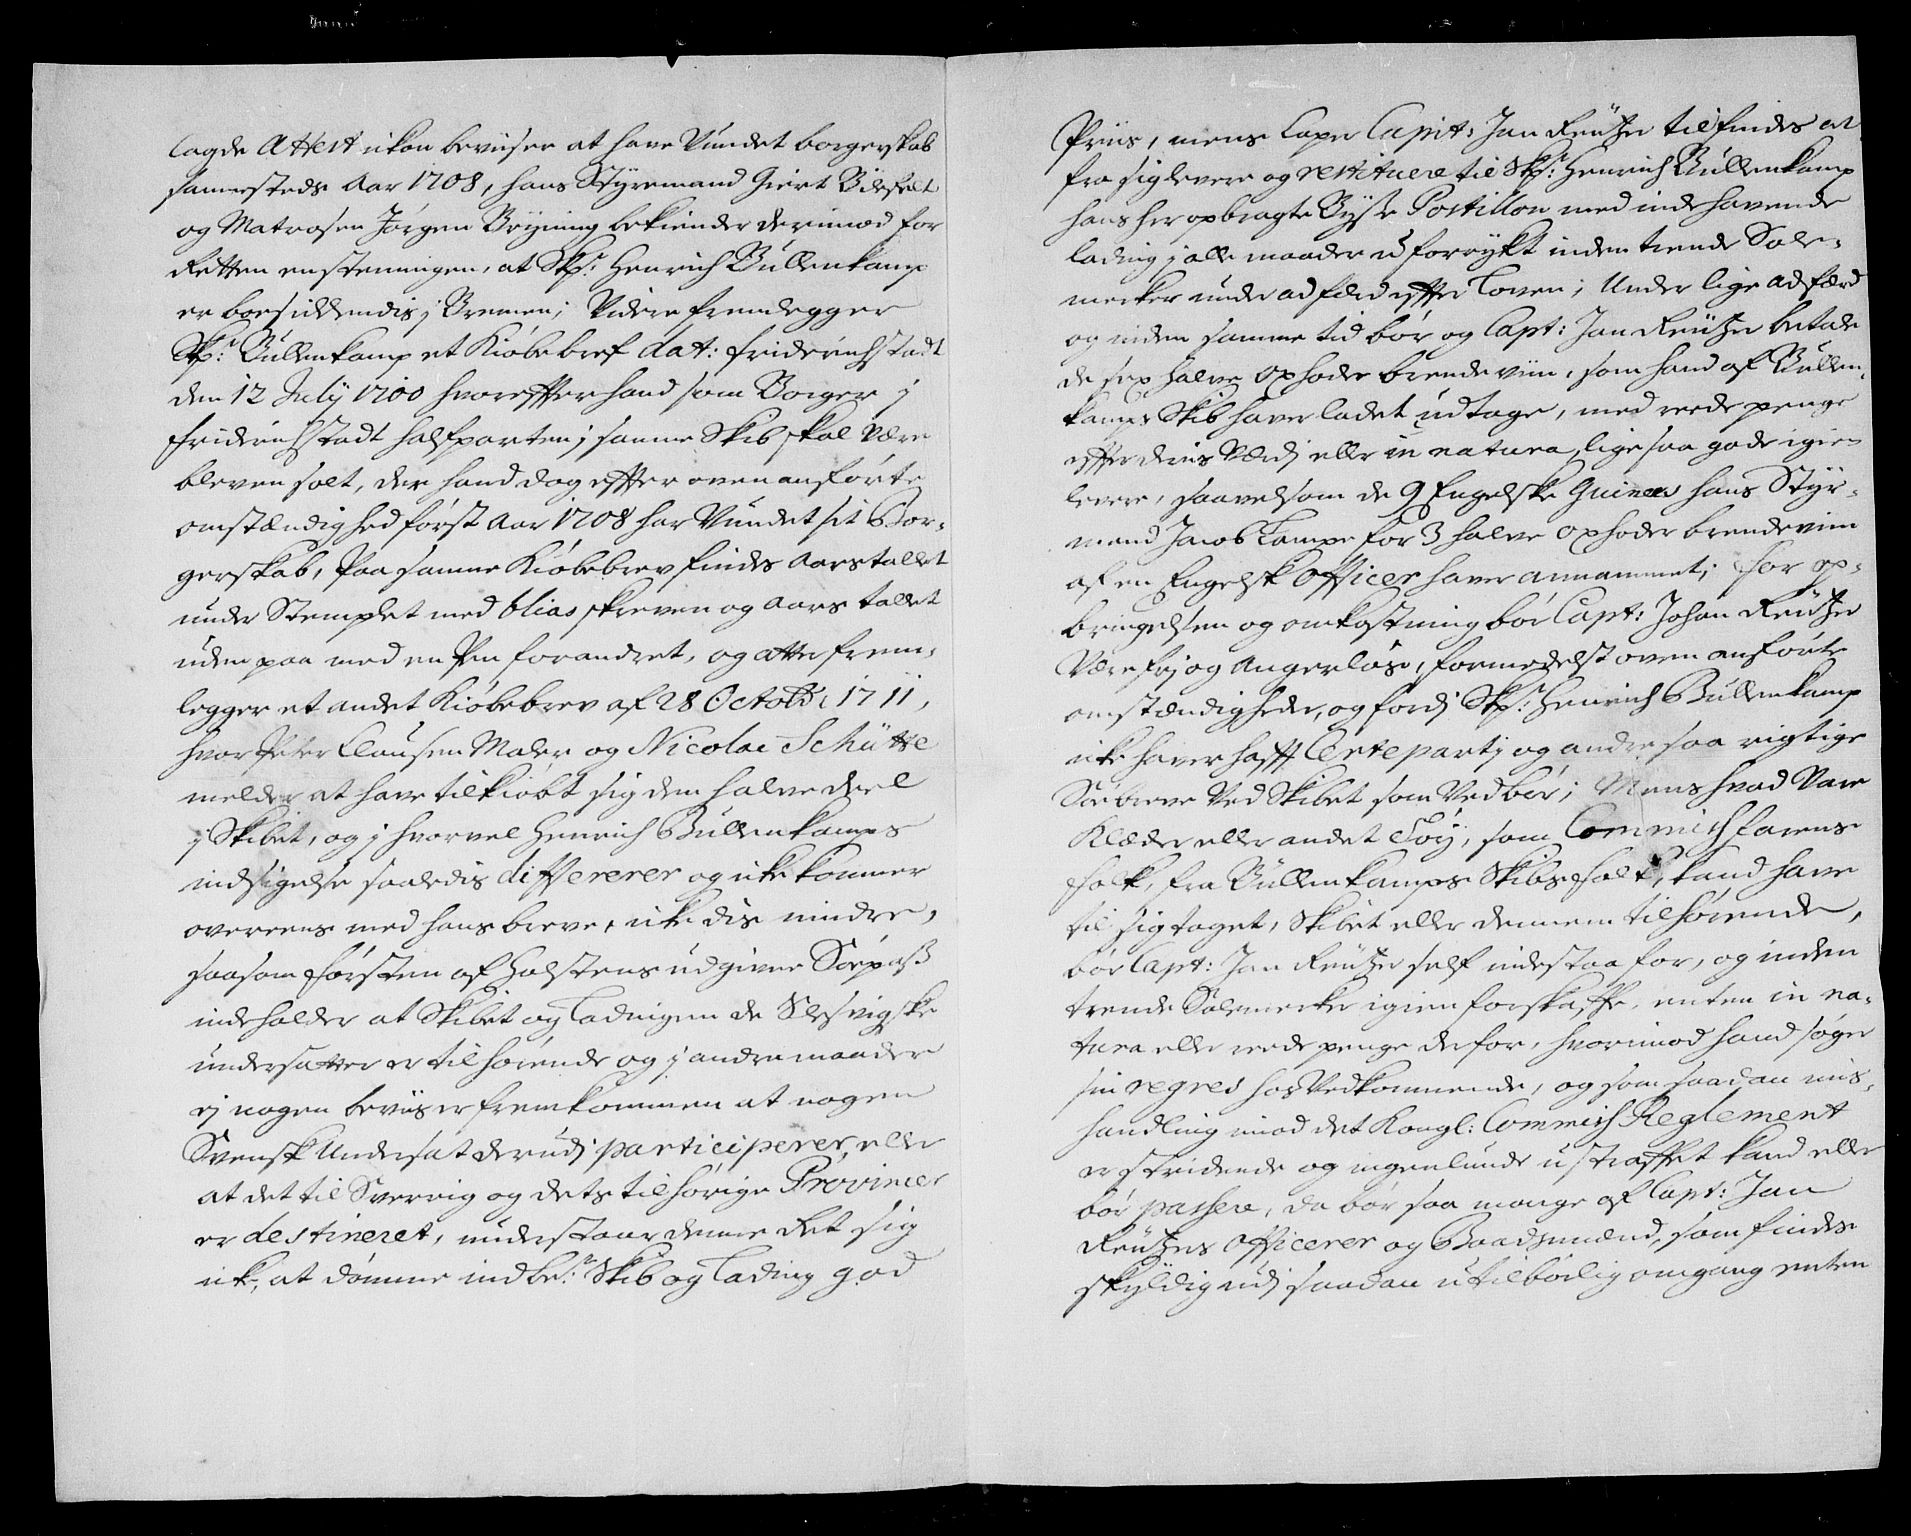 lagde Attest ikon beviiser at have Vundet borgerskab
sammesteds Aar 1708, hans Styremand Giert Bilefelt
og Matrosen Jørgen Bryning bekiender derimod for
Retten enstemmigen, at Skp.r Henrich Bullenkamp
er boesiddendis j Bremen; Videre fremlegger
Skp.r Bullenkamp et Kiøbebref dat: friderichstadt
den 12 July 1700 hvoreffter hand som Borger j
friderichstadt halfparten j samme Skib skal være
bleven solt, der hand dog effter ovenanførte
omstændighed først Aar 1708 har Vundet sit Bor-
gerskab, Paa samme Kiøbebrev findes Aarstallet
under Stemplet med blias skreven og Aars tallet
uden paa med en Pen forandret, og atter frem-
legger et andet Kiøbebrev af 28 Octobr: 1711,
hvor Peter Clausen Maler og Nicolai Schütte
melder at have tilkiøbt sig den halve deel
j Skibet, og j hvorvel Henrich Bullenkamps
indsigelse saaledis differerer og icke kommer
overeens med hans breve, icke dis mindre,
saasom første af Holstens udgivne Søepass
indeholder at Skibet og Ladningen de Slesvigske
undersatter er tilhørende og j andre maader
ej nogen beviis er fremkommen at nogen
Svensk Undersat derudj participerer, eller
at det til Sverrig og dets tilhørige Provincier
er destineret, understaar denne Ret sig
ick, at dømme indbe:te Skib og Lading god
Priis, mens Caper Capit: Jan Reutzer tilfindes at
fra sig levere og restituere til Skp.r Henrich Bullenkamp
hans her opbragte Bysse Postillon med indehavende
lading j alle maader uforrykt inden trende Sole-
mercker under adfærd effter Loven; Under lige adfærd
og inden samme tid bør og Capt: Jan Reutzer betale
de sex halve Oxhoder brendeviin, som hand af Bullen-
kamps Skib haver ladet udtage, med reede penge
effter deris Værdj eller in natura, lige saa gode igien
levere, saavelsom de 9 Engelske Guinees hans Styr-
mand Jacob Lampe for 3 halve Oxhoder brendeviin
af en Engelsk Officer haver annammet; For op-
bringelsen og omkostning bør Capt: Johan Reutzer
Være frj og Angerløse, formedelst ovenanførte
omstændigheder, og fordj Skp.r Henrich Bullenkamp
icke haver hafft Certepartj og andre saa rigtige
Søebreve Ved Skibet som Ved bør; Mens hvad Vare
Klæder eller andet Tøy, som Commissfarens
Folk, fra Bullenkamps Skibsfolk, kand have
til sig taget, Skibet eller dennem tilhørende,
bør Capt: Jan Reutzer self indestaa for, og inden
trende Solemercker igien forskaffe, enten in na-
tura eller reede penge derfor, hvorimod hand søger
sin regres hos Vedkommende, og som saadan mis-
handling imod det Kongl: Commiss Reglement
er stridende og ingenlunde ustraffet kand eller
bør passere, da bør saa mange af Capt: Jan
Reutzers Officerer og Baadsmænd, som findes
skyldig udj saadan utilbørlig omgang enten